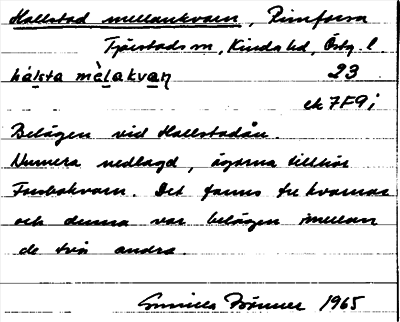 Hallstad mellankvarn, Rimforsa
Tjärstads sn, Kinda hd, Östg. l
hálsta mèlakvaɳ 23
ek 7F9i
Belägen vid Hallstadån.
Numera nedlagd, ägorna tillhör
Forsbokvarn. Det fanns tre kvarnar
och denna var belägen mellan
de två andra.
Gunilla 1965